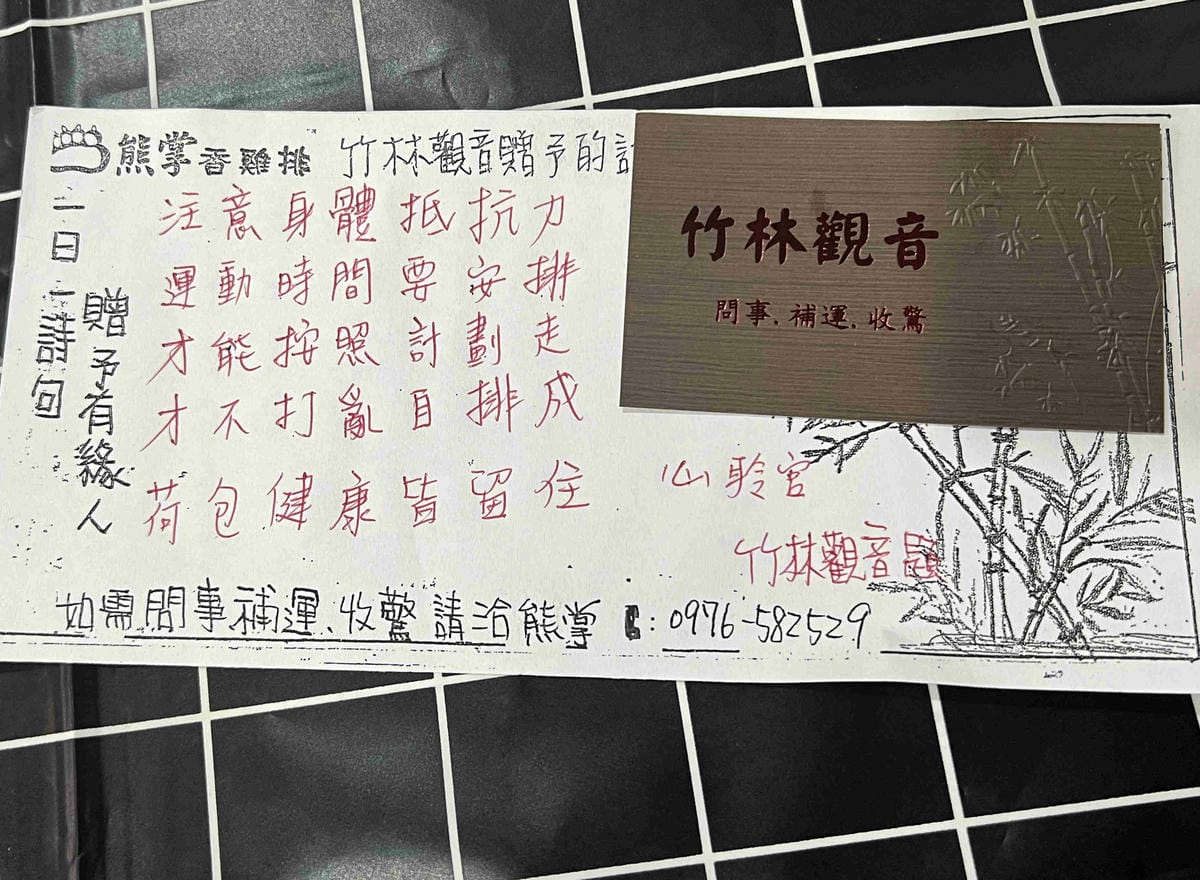 熊掌香雞排 竹林觀音贈予的
一日一詩句
贈予有緣人
注意身體抵抗力
運動時間要安排
才能按照計劃走
才不打亂自排成
荷包健康皆留住
仙聆宮
竹林觀音題
如需問事補運、收驚請洽熊掌:0976-582529
竹林觀音
問事、補運、收驚